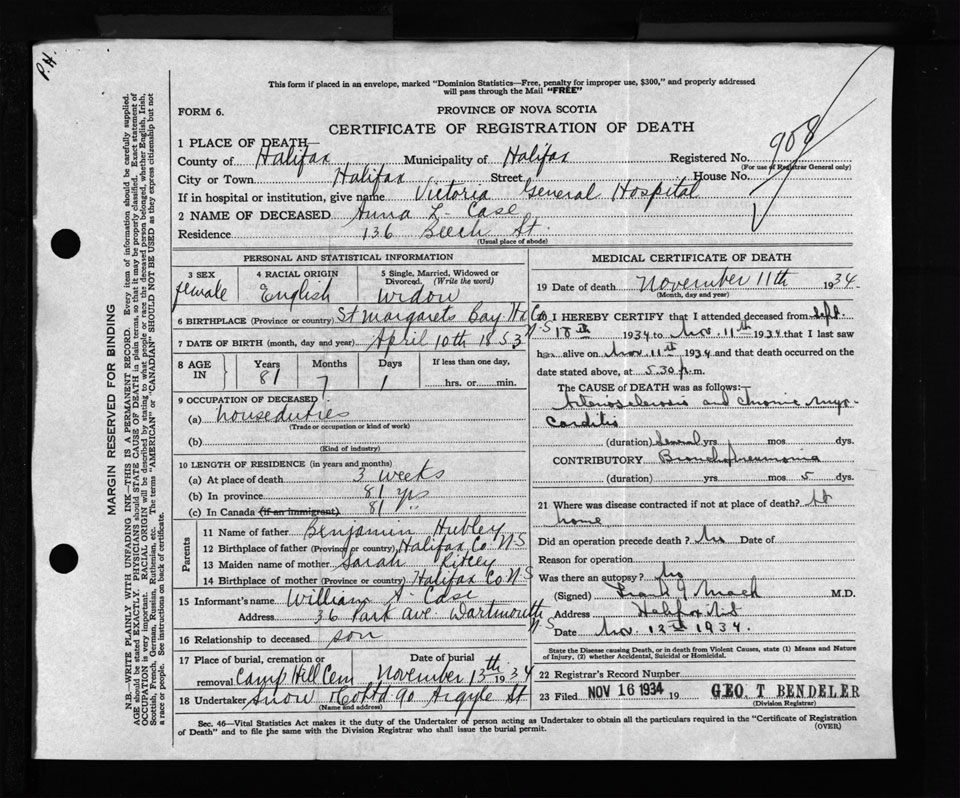 P.H.
This form if placed in an envelope, marked "Dominion Statistics—Free, penalty for improper use, $300," and properly addressed
will pass through the Mail "FREE"
FORM 6.
PROVINCE OF NOVA SCOTIA
CERTIFICATE OF REGISTRATION OF DEATH
908
1 PLACE OF DEATH—
County of Halifax Municipality of Halifax Registered No.
(For use of Registrar General only)
City or Town Halifax Street House No.
If in hospital or institution, give name Victoria General Hospital
2 NAME OF DECEASED Anna L. Case
Residence 136 Beech St.
(Usual place of abode)
PERSONAL AND STATISTICAL INFORMATION
3 SEX female
4 RACIAL ORIGIN English
5 Single, Married, Widowed or Divorced. (Write the word) widow
6 BIRTHPLACE (Province or country) St Margarets Bay Hx Co N-S
7 DATE OF BIRTH (month, day and year) April 10th 1853
8 AGE IN Years 81 Months 7 Days 1 If less than one day, hrs. or min.
9 OCCUPATION OF DECEASED
(a) houseduties
(Trade or occupation or kind of work)
(b)
(Kind of industry)
10 LENGTH OF RESIDENCE (in years and months)
(a) At place of death 3 weeks
(b) In province 81 yrs
(c) In Canada (if an immigrant) 81 "
Parents
11 Name of father Benjamin Hubley
12 Birthplace of father (Province or country) Halifax Co N-S
13 Maiden name of mother Sarah Ritcey
14 Birthplace of mother (Province or country) Halifax Co N-S
15 Informant's name William A. Case
Address 36 Park Ave. Dartmouth N-S
16 Relationship to deceased son
17 Place of burial, cremation or removal Camp Hill Cem Date of burial November 13th 1934
18 Undertaker Snow & Co Ltd 90 Argyle St
(Name and address)
MEDICAL CERTIFICATE OF DEATH
19 Date of death November 11th 1934.
(Month, day and year)
I HEREBY CERTIFY that I attended deceased from Sept.
18th 1934 to Nov. 11th 1934 that I last saw
h alive on Nov. 11th 1934 and that death occurred on the
date stated above, at 5.30 m.
The CAUSE OF DEATH was as follows:
Arteriosclerosis and Chronic Myo-
Carditis
(duration) Several yrs mos dys.
CONTRIBUTORY Bronchopneumonia
(duration) yrs mos 5 dys.
21 Where was disease contracted if not at place of death? At
home
Did an operation precede death? No Date of
Reason for operation
Was there an autopsy? No
(Signed) Frank G Mack M.D.
Address Halifax N.S
Date Nov. 12th 1934.
State the Disease causing Death, or in death from Violent Causes, state (1) Means and Nature
of Injury, (2) whether Accidental, Suicidal or Homicidal.
22 Registrar's Record Number
23 Filed NOV 16 1934 19 GEO. T BENDELER
(Division Registrar)
Sec. 46—Vital Statistics Act makes it the duty of the Undertaker or person acting as Undertaker to obtain all the particulars required in the "Certificate of Registration
of Death" and to file the same with the Division Registrar who shall issue the burial permit.
(OVER)
MARGIN RESERVED FOR BINDING
N.B.—WRITE PLAINLY WITH UNFADING INK—THIS IS A PERMANENT RECORD. Every item of information should be carefully supplied.
AGE should be stated EXACTLY. PHYSICIANS should STATE CAUSE OF DEATH in plain terms, so that it may be properly classified. Exact statement of
OCCUPATION is very important. RACIAL ORIGIN will be described by stating to what people or race the deceased person belonged, whether English, Irish,
Scottish, French, German, Russian, Ruthenian, etc. The terms "AMERICAN" or "CANADIAN" SHOULD NOT BE USED as they express citizenship but not
a race or people. See instructions on back of certificate.